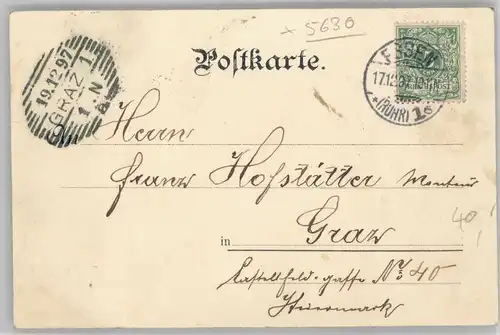 x 5630
Postkarte.
19.12.97
GRAZ 1
1. N
ESSEN
17.12.97
(RUHR) 1
Reichspost
Herrn
Franz Hofstätter Monteur
in Graz
Castellfeld-gasse No 40
Steiermark
40